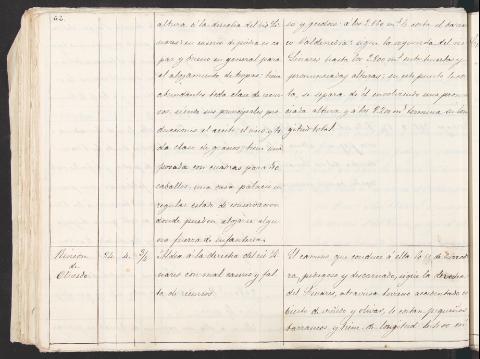 62.
altura á la derecha del rio Li
nares: su caserio de piedra es ca
paz y bueno en general para
el alojamiento de tropas: tiene
abundantes toda clase de recur
sos, siendo sus principales pro
ducciones el aceite el vino y to
da clase de granos; tiene una
posada con cuadras para
caballos, una casa palacio en
regular estado de conservacion
donde pueden alojarse algu
na fuerza de infanteria.
so y pedroso: a los 2.850 m.s le corta el barran
co Valdeneria: sigue la izquierda del rio
Linares hasta los 2.800 entre huertas y
pronunciadas alturas; en este punto
se separa de él envolviendo una pro
ciada altura y a los 8.200 m.s termina su lon
gitud total.
Rincon
de
Olivedo
24
4
Aldea á la derecha del rio Li
nares con mal caserio y fal
ta de recursos.
El camino que conduce á ella es de herradu
ra, pedregoso y descarnado, sigue la derecha
del Linares, atraviesa terreno accidentado cu
bierto de viñedo y olivar, le cortan pequeños
barrancos y tiene de longitud